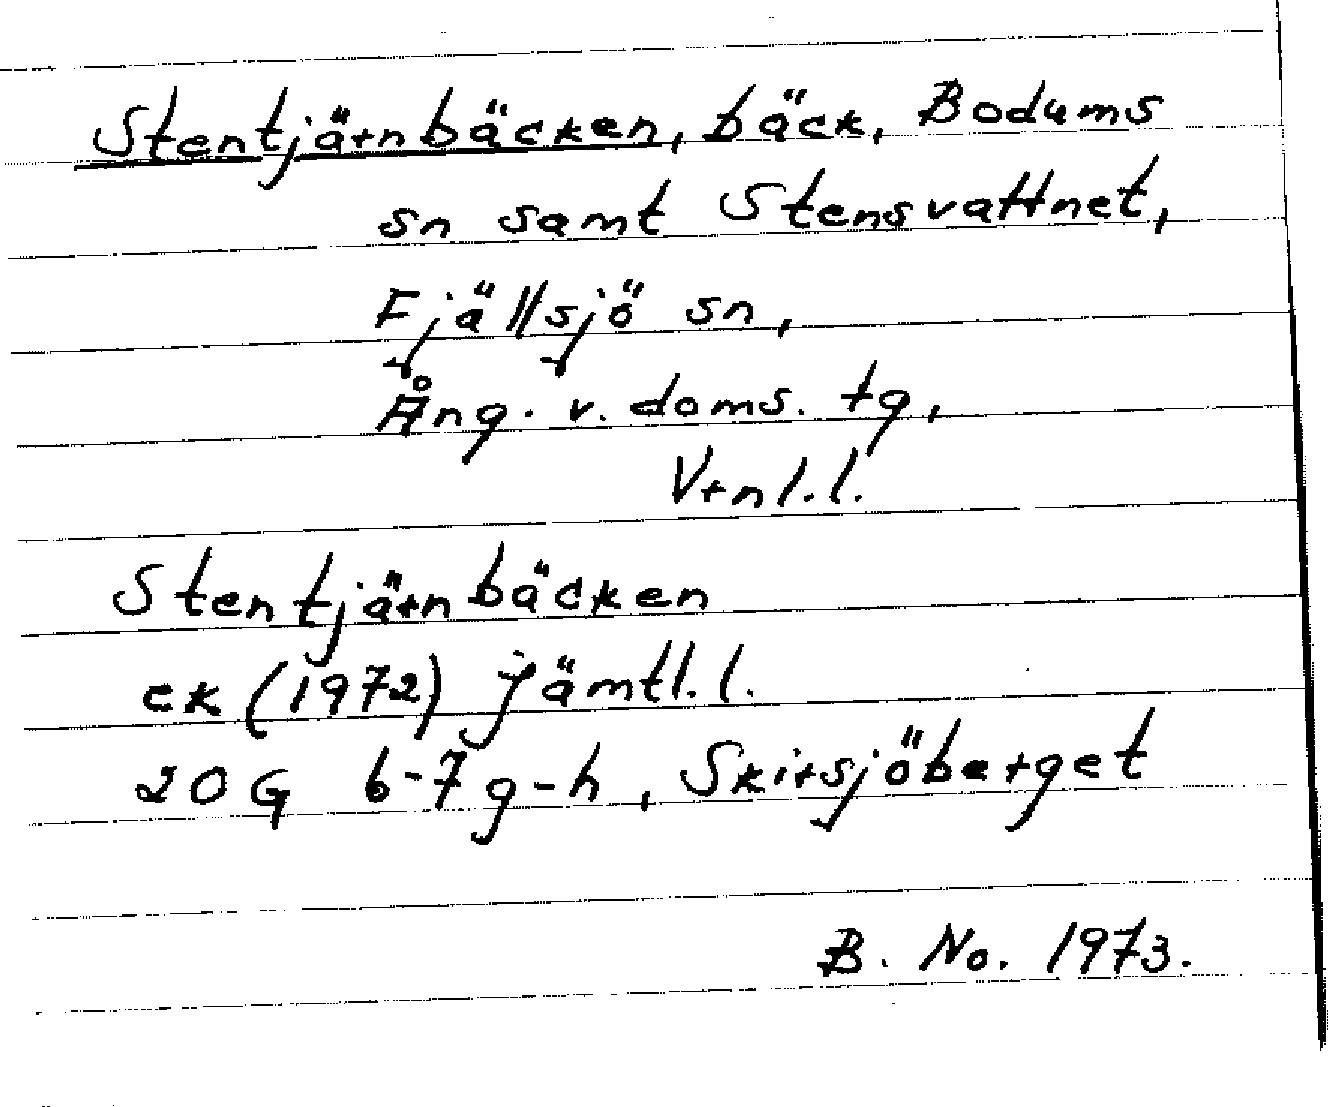 Stentjärnbäcken, bäck, Bodums
sn samt Stensvattnet,
Fjällsjö sn,
Ång. v. doms. tg,
Vrnl.l.
Stentjärnbäcken
ek (1972) Jämtl.l.
20 G 6-7 g-h, Skirsjöberget
B. No. 1973.